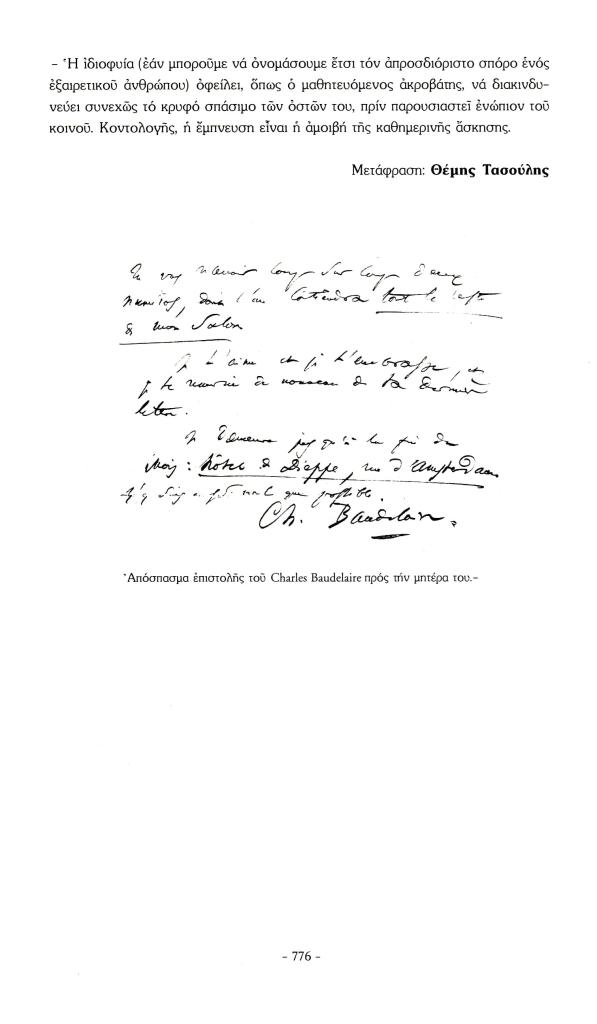 - Ἡ ἰδιοφυία (ἐάν μποροῦμε νά ὀνομάσουμε ἔτσι τόν ἀπροσδιόριστο σπόρο ἑνός
ἐξαιρετικοῦ ἀνθρώπου) ὀφείλει, ὅπως ὁ μαθητευόμενος ἀκροβάτης, νά διακινδυ-
νεύει συνεχῶς τό κρυφό σπάσιμο τῶν ὀστῶν του, πρίν παρουσιαστεῖ ἐνώπιον τοῦ
κοινοῦ. Κοντολογῆς, ἡ ἔμπνευση εἶναι ἡ ἀμοιβή τῆς καθημερινῆς ἄσκησης.
Μετάφραση: Θέμης Τασούλης
Tu vas recevoir coup sur coup deux
numéros, dont l'un contiendra tout le reste
de mon Salon
Je t'aime et je t'embrasse, et
je te remercie de nouveau de ta dernière
lettre.
Je demeure jusqu'à la fin du
Mois: hôtel de Dieppe, rue d'Amsterdam
que possible.
Ch. Baudelaire.
Ἀπόσπασμα ἐπιστολῆς τοῦ Charles Baudelaire πρός τήν μητέρα του.-
- 776 -